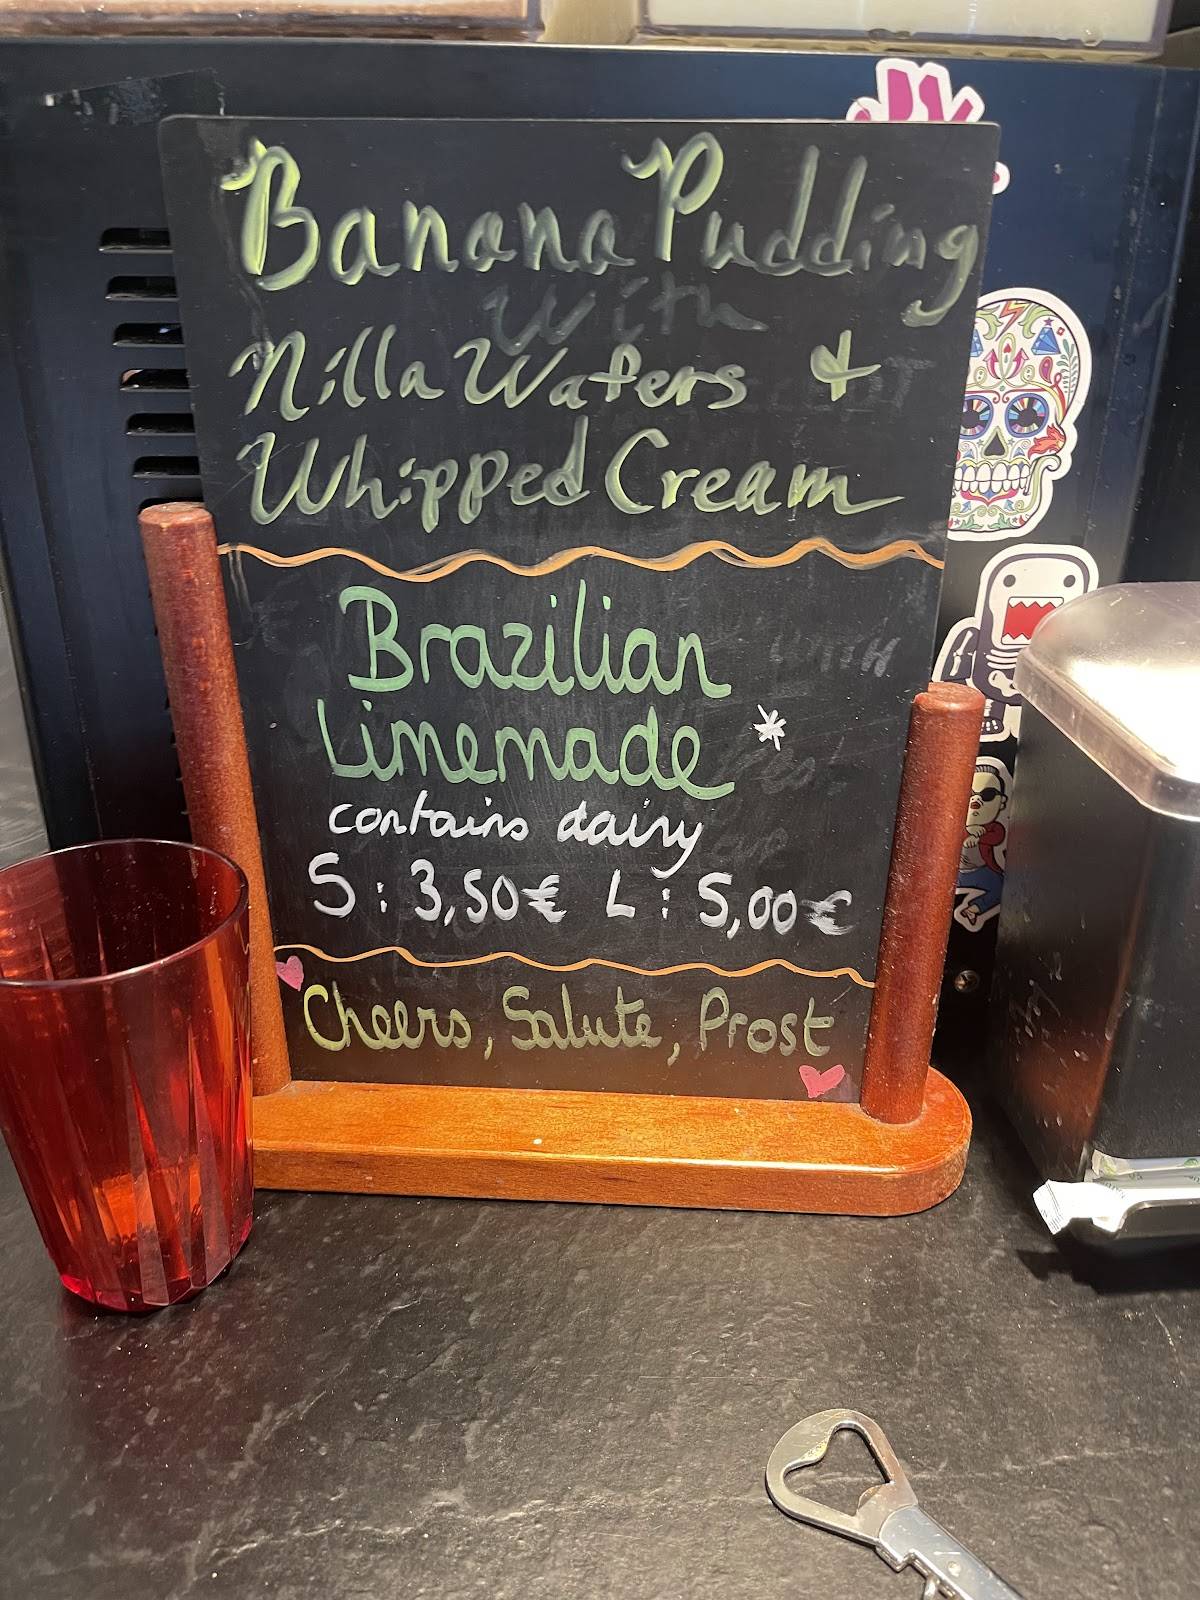 Banana Pudding
with
Nilla Wafers &
Whipped Cream
Brazilian
Limemade *
contains dairy
S : 3,50€ L : 5,00€
Cheers, Salute, Prost